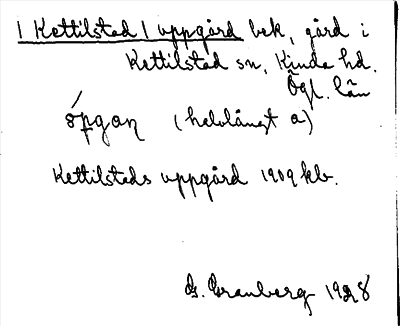 1 Kettilstad 1 uppgård bek, gård i
Kettilstad sn, Kinda hd.
Ögl. län
(halvlångt a)
Kettilstads uppgård 1909 kb.
G. Granberg 1928